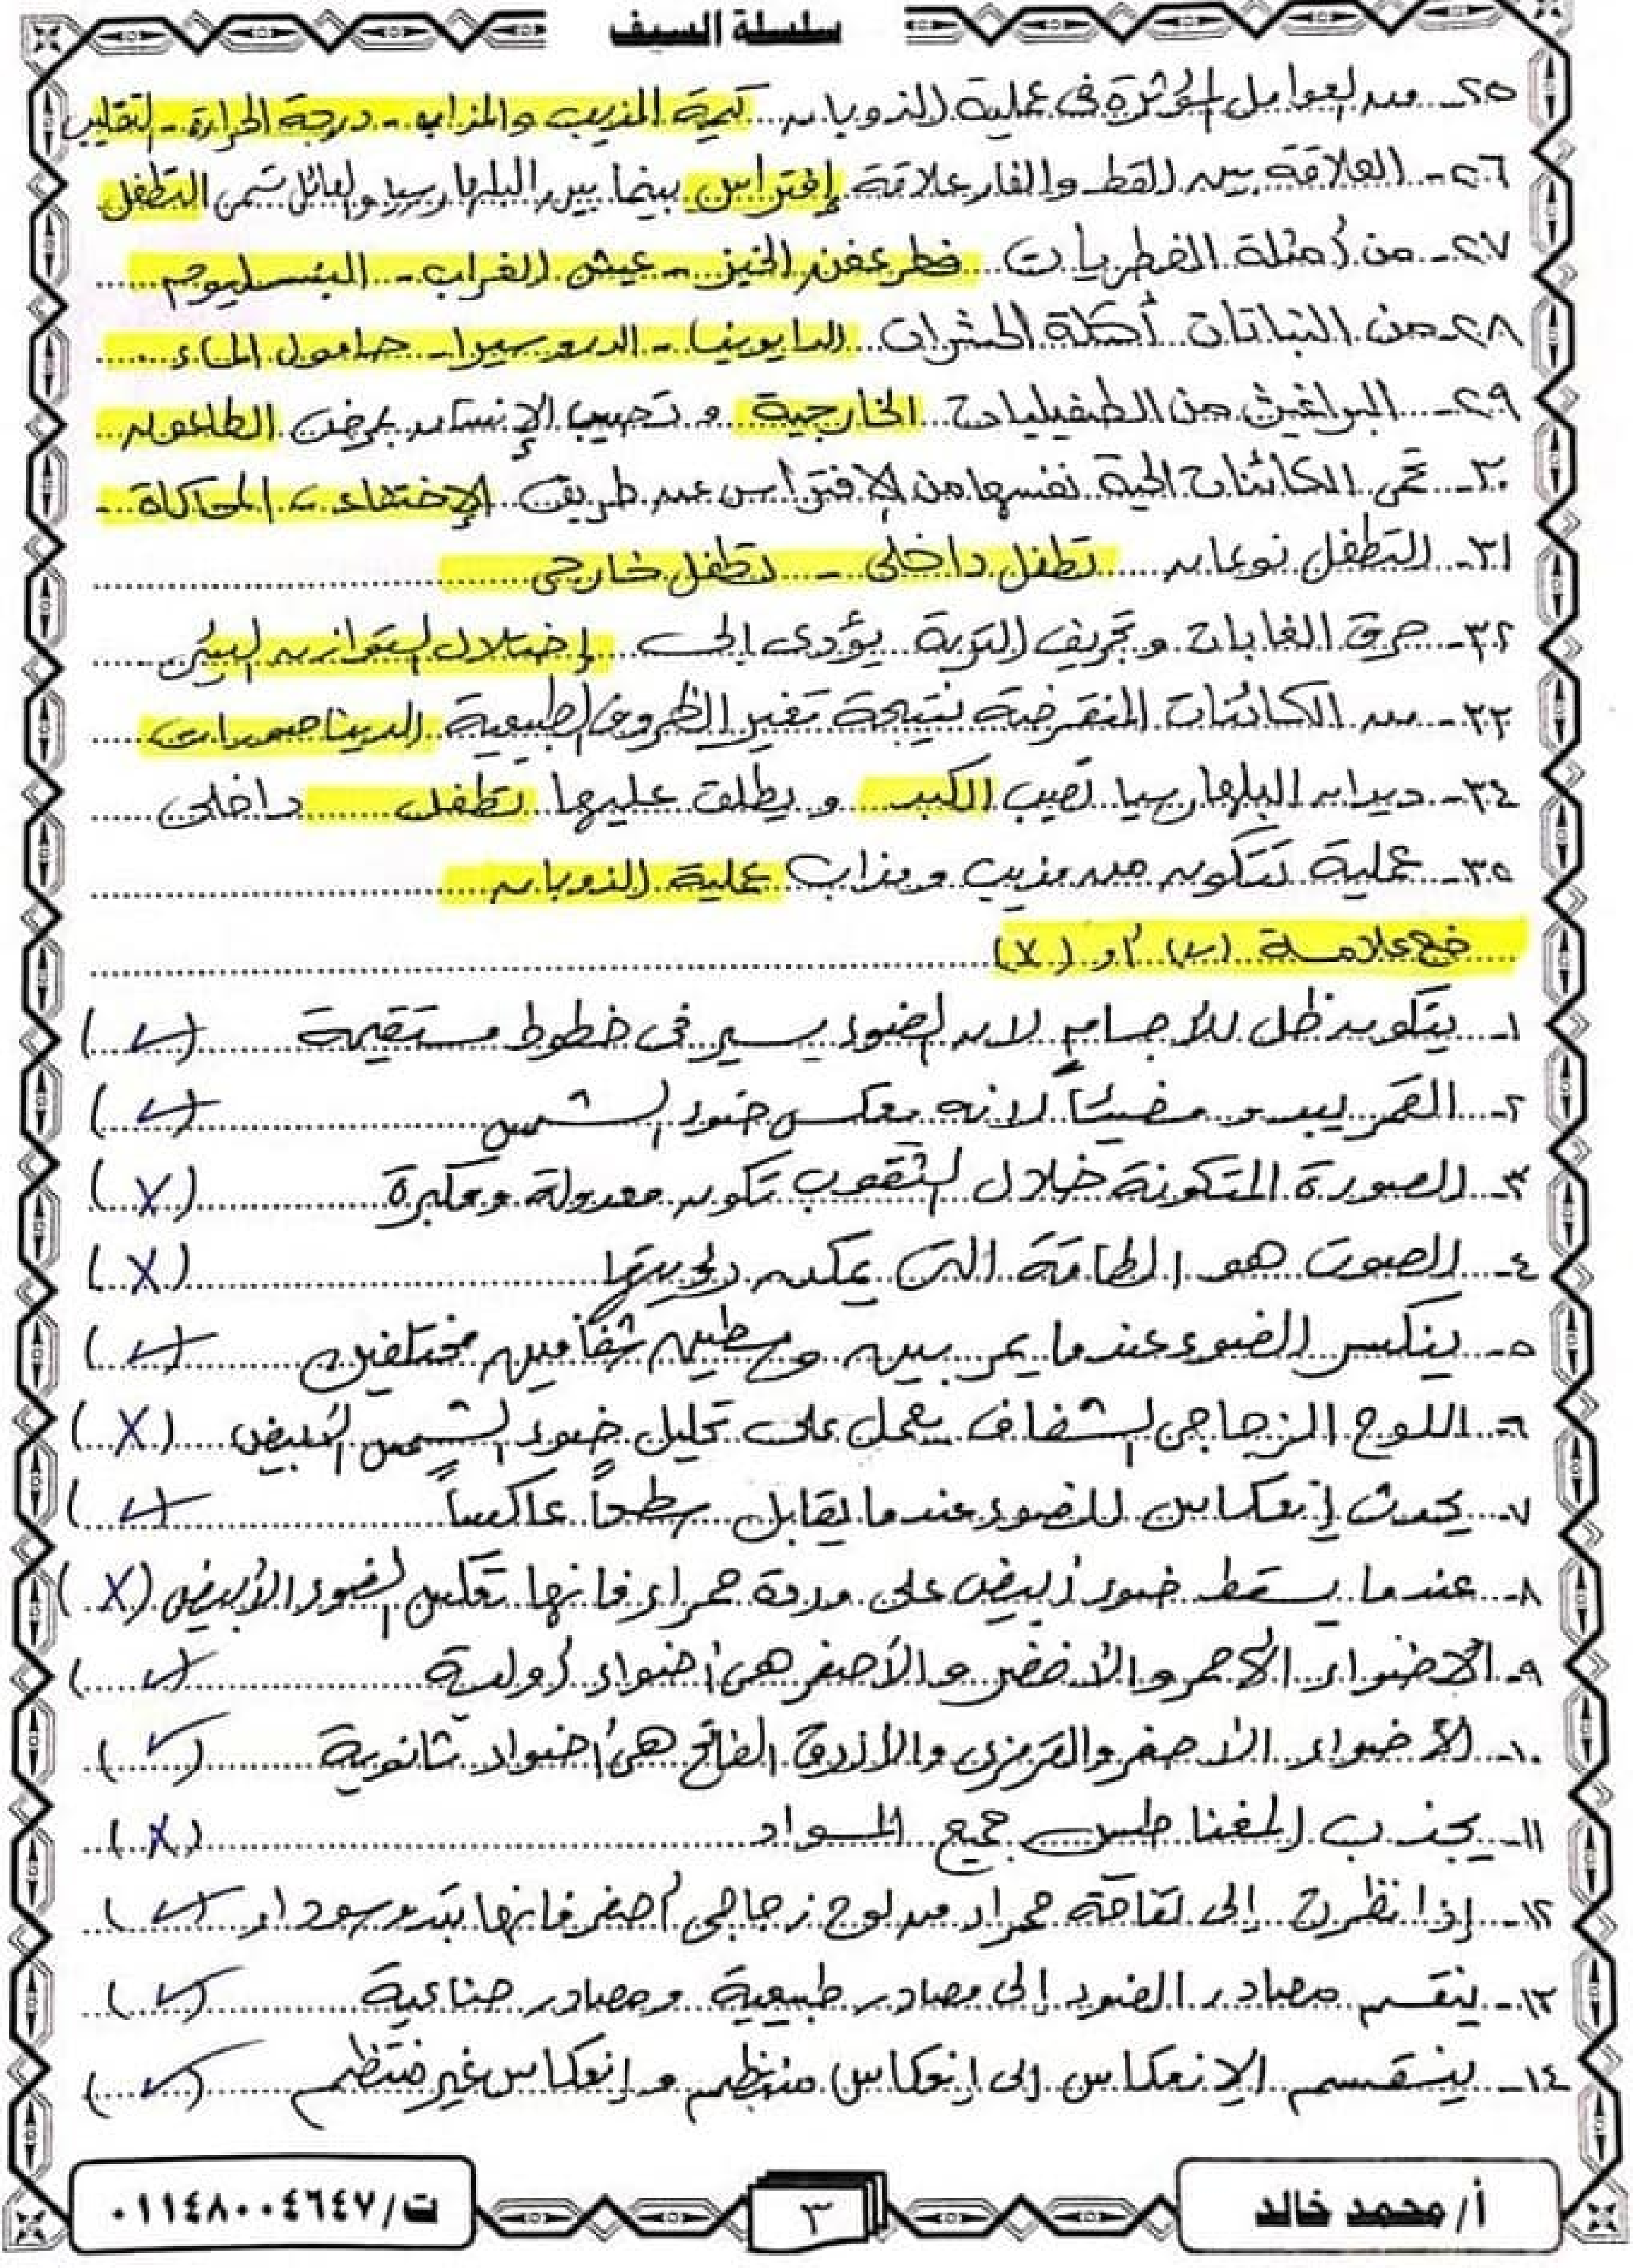 سلسلة السيف
٢٥- من العوامل المؤثرة فى عملية الذوبان كمية المذيب والمذاب - درجة الحرارة - التقليب
٢٦- العلاقة بين القط والفار علاقة إفتراس بينما بين البلهارسيا والعائل تسمى التطفل
٢٧- من أمثلة الفطريات فطر عفن الخبز - عيش الغراب - البنسليوم
٢٨- من النباتات أكلة الحشرات الدايونيا - الدروسيرا - حامول الماء
٢٩- البراغيث من الطفيليات الخارجية و تصيب الإنسان بمرض الطاعون
٣٠- تحمى الكائنات الحية نفسها من الافتراس عن طريق الإختفاء ، المحاكاة
٣١- التطفل نوعان تطفل داخلى - تطفل خارجى
٣٢- حرق الغابات و تجريف التربة يؤدى إلى إختلال التوازن البيئى
٣٣- من الكائنات المنقرضة نتيجة تغير الظروف الطبيعية الديناصورات
٣٤- ديدان البلهارسيا تصيب الكبد و يطلق عليها تطفل داخلى
٣٥- عملية تتكون من مذيب ومذاب عملية الذوبان
ضع علامة (✓) أو (X)
١- يتكون ظل للأجسام لان الضوء يسير فى خطوط مستقيمة (✓)
٢- القمر يبدو مضيئاً لانه يعكس ضوء الشمس (✓)
٣- الصورة المتكونة خلال الثقوب تكون معدولة ومكبرة (X)
٤- الصوت هو الطاقة التى يمكن رؤيتها (X)
٥- ينكسر الضوء عندما يمر بين وسطين شفافين مختلفين (✓)
٦- اللوح الزجاجى الشفاف يعمل على تحليل ضوء الشمس الأبيض (X)
٧- يحدث إنعكاس للضوء عندما يقابل سطحاً عاكساً (✓)
٨- عندما يسقط ضوء أبيض على وردة حمراء فانها تعكس الضوء الأبيض (X)
٩- الأضواء الأحمر والأخضر والأصفر هى أضواء أولية (✓)
١٠- الأضواء الأصفر والقرمزى والأزرق الفاتح هى أضواء ثانوية (✓)
١١- يجذب المغناطيس جميع المواد (X)
١٢- إذا نظرت إلى تفاحة حمراء من لوح زجاجى أصفر فانها تبدو سوداء (✓)
١٣- ينقسم مصادر الضوء إلى مصادر طبيعية ومصادر صناعية (✓)
١٤- ينقسم الإنعكاس إلى إنعكاس منتظم و إنعكاس غير منتظم (✓)
أ/ محمد خالد
٣
ت/ ٠١١٤٨٠٠٤٦٤٧